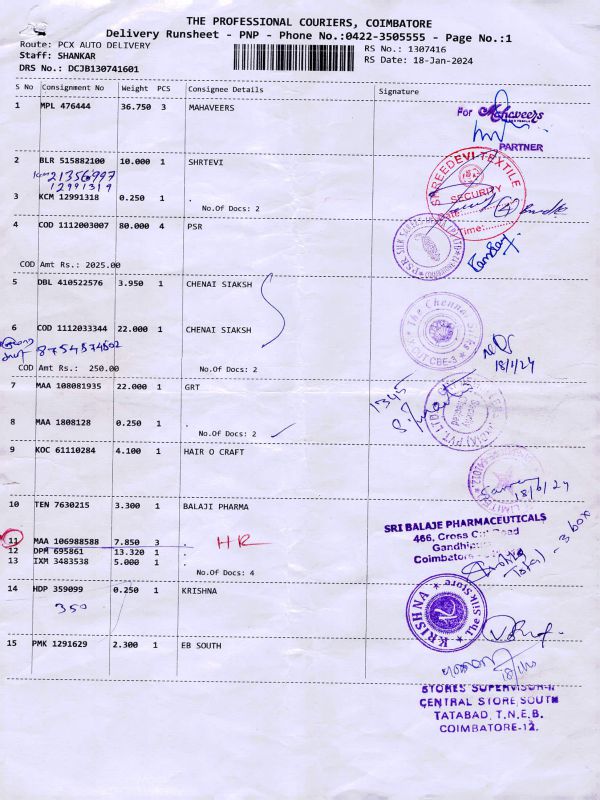 THE PROFESSIONAL COURIERS, COIMBATORE
Delivery Runsheet - PNP - Phone No.:0422-3505555 - Page No.:1
Route: PCX AUTO DELIVERY
RS No.: 1307416
Staff: SHANKAR
RS Date: 18-Jan-2024
DRS No.: DCJB130741601
S No Consignment No Weight PCS Consignee Details Signature
1 MPL 476444 36.750 3 MAHAVEERS
For Mahaveers
PARTNER
2 BLR 515882100 10.000 1 SHRTEVI
KCM 21356997
12991319
SHREEDEVI TEXTILE
SECURITY
Date:
Time:
3 KCM 12991318 0.250 1 .
No.Of Docs: 2
4 COD 1112003007 80.000 4 PSR
COD Amt Rs.: 2025.00
5 DBL 410522576 3.950 1 CHENAI SIAKSH
The Chennai
CUT CBE-3
6 COD 1112033344 22.000 1 CHENAI SIAKSH
8754874802
18/1/24
COD Amt Rs.: 250.00 No.Of Docs: 2
7 MAA 108081935 22.000 1 GRT
1345
8 MAA 1808128 0.250 1 .
No.Of Docs: 2
9 KOC 61110284 4.100 1 HAIR O CRAFT
LIMITED
10 TEN 7630215 3.300 1 BALAJI PHARMA
SRI BALAJE PHARMACEUTICALS
466, Cross Cut Road
Coimbatore
Total - 3 box
11 MAA 106988588 7.850 3 . HR
12 DPM 695861 13.320 1
13 IXM 3483538 5.000 1 .
No.Of Docs: 4
14 HDP 359099 0.250 1 KRISHNA
350
KRISHNA The Silk Store
15 PMK 1291629 2.300 1 EB SOUTH
STORES SUPERVISOR-II
CENTRAL STORE, SOUTH
TATABAD, T.N.E.B.
COIMBATORE-12.